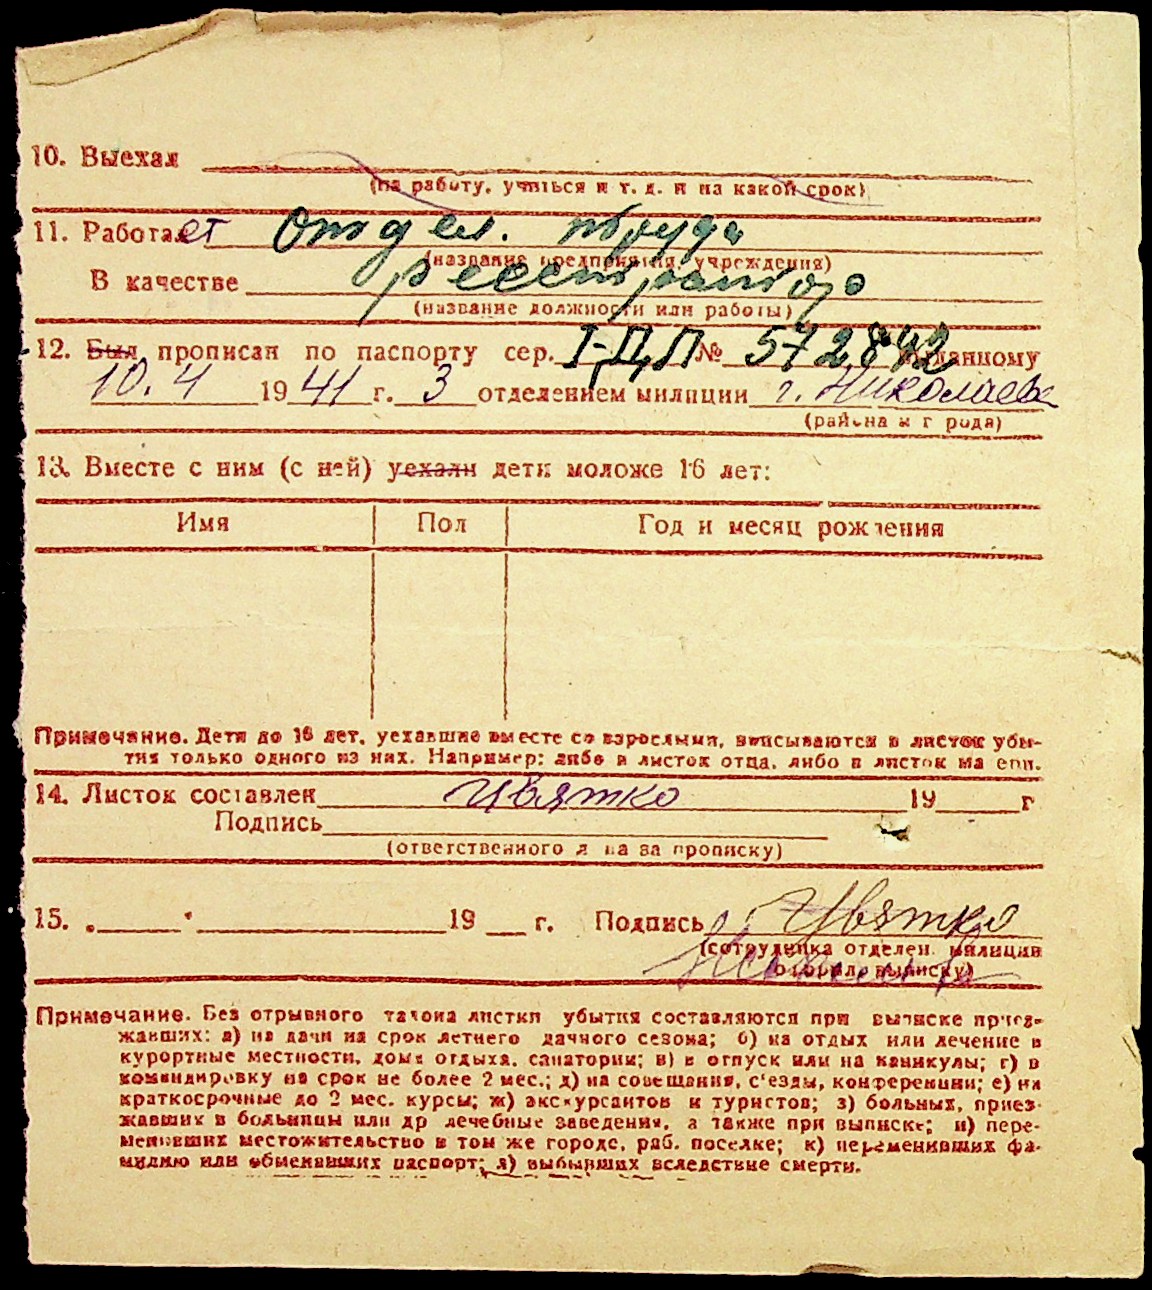 10. Выехал
(на работу, учиться и т. д. и на какой срок)
11. Работает Отдел. труда
(название предприятия, учреждения)
В качестве
(название должности или работы)
12. Был прописан по паспорту сер. I-ДЛ № 572842 выданному
10.4 1941 г. 3 отделением милиции г. Николаев
(района и города)
13. Вместе с ним (с ней) уехали дети моложе 16 лет:
Имя Пол Год и месяц рождения
Примечание. Дети до 16 лет, уехавшие вместе со взрослыми, вписываются в листок убы-
тия только одного из них. Например: либо в листок отца, либо в листок матери.
14. Листок составлен 19 г
Подпись
(ответственного лица за прописку)
15. 19 г. Подпись
(сотрудника отделен. милиции
оформил. выписку)
Примечание. Без отрывного талона листки убытия составляются при выписке приез-
жавших: а) на дачи на срок летнего дачного сезона; б) на отдых или лечение в
курортные местности, дома отдыха, санатории; в) в отпуск или на каникулы; г) в
командировку на срок не более 2 мес.; д) на совещания, с'езды, конференции; е) на
краткосрочные до 2 мес. курсы; ж) экскурсантов и туристов; з) больных, приез-
жавших в больницы или др лечебные заведения, а также при выписке; и) пере-
менивших местожительство в том же городе, раб. поселке; к) переменивших фа-
милию или обменявших паспорт; л) выбывших вследствие смерти.